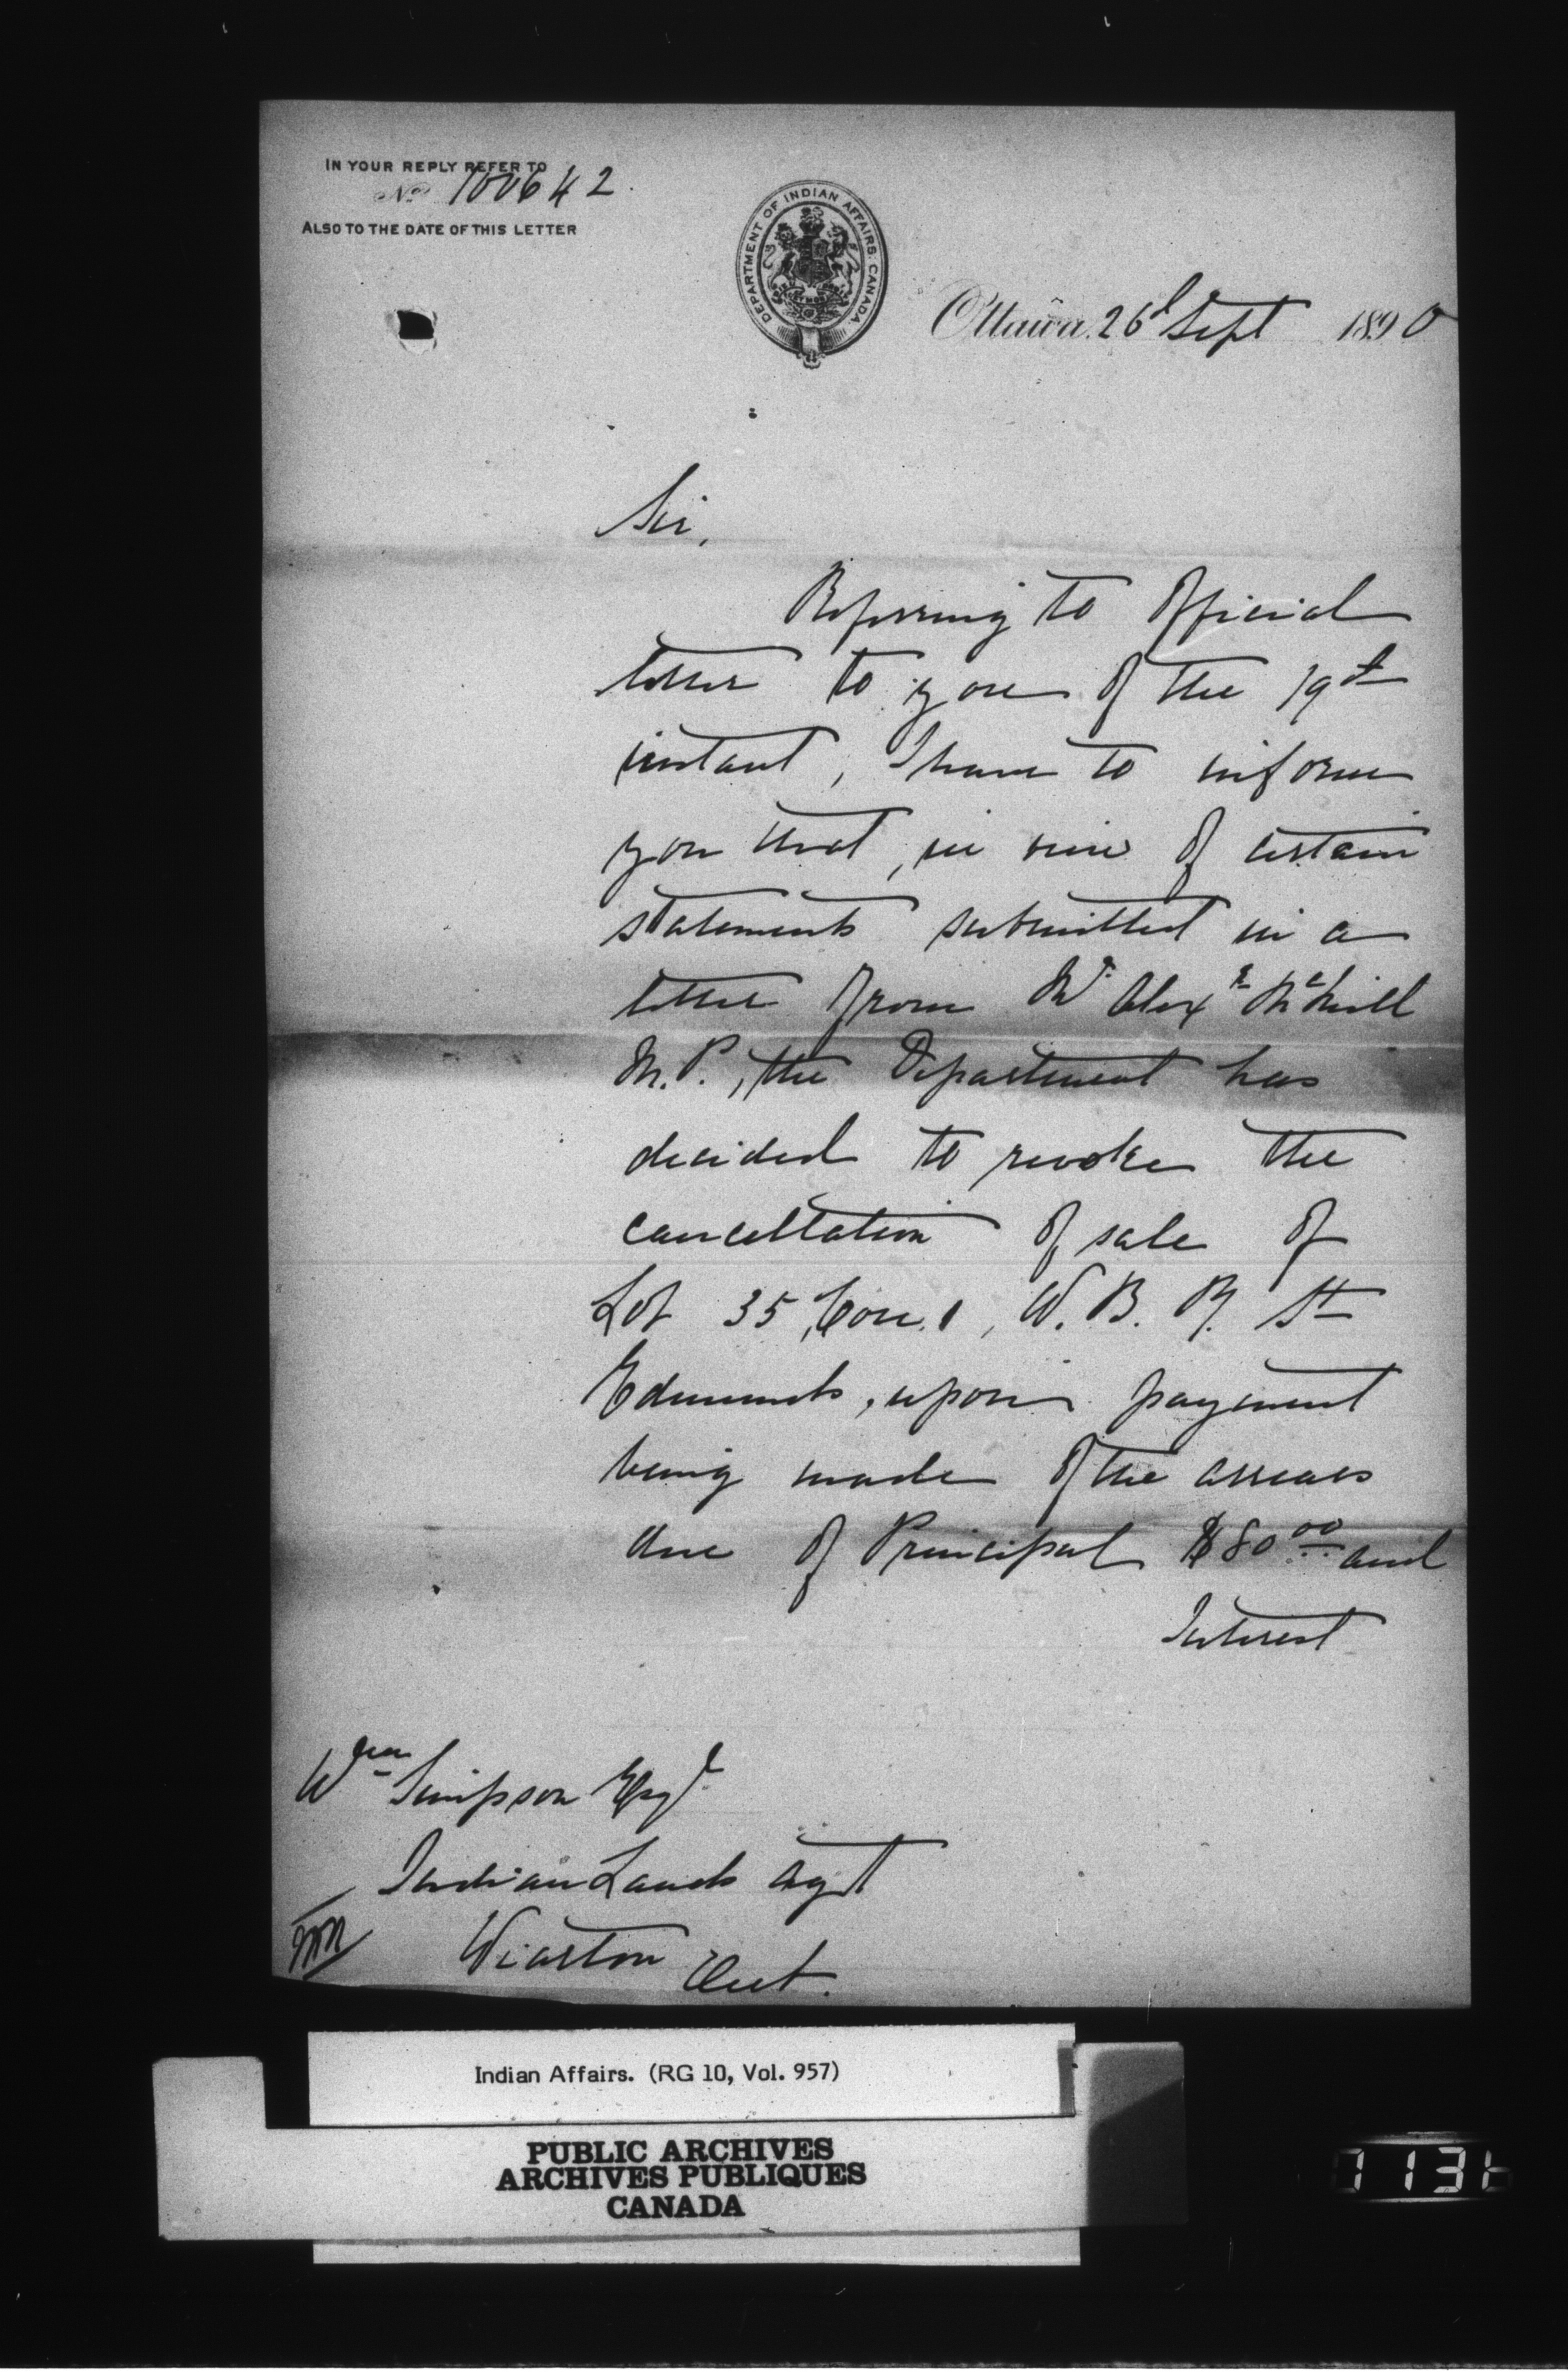 IN YOUR REPLY REFER TO
No 100642.
ALSO TO THE DATE OF THIS LETTER
DEPARTMENT OF INDIAN AFFAIRS CANADA
Ottawa, 26th Sept 1890
Sir,
Referring to Official
letter to you of the 19th
instant, I have to inform
you that, in view of certain
statements submitted in a
letter from Mr. Alexr McNeill
M.P., the Department has
decided to revoke the
cancellation of sale of
Lot 35, Con. 1, W. B. R. St
Edmunds, upon payment
being made of the arrears
due of Principal $80.00 and
Interest
Wm Simpson Esqr
Indian Lands Agt
Wiarton
Ont.
Indian Affairs. (RG 10, Vol. 957)
PUBLIC ARCHIVES
ARCHIVES PUBLIQUES
CANADA